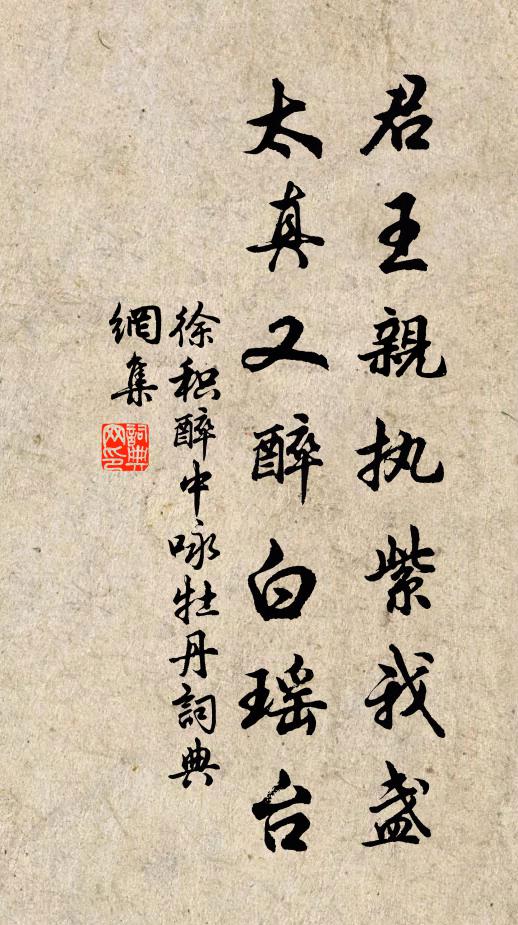 君王親执紫我盏
太真又醉白瑶台
徐积醉中咏牡丹詞典
網集
詞典网印